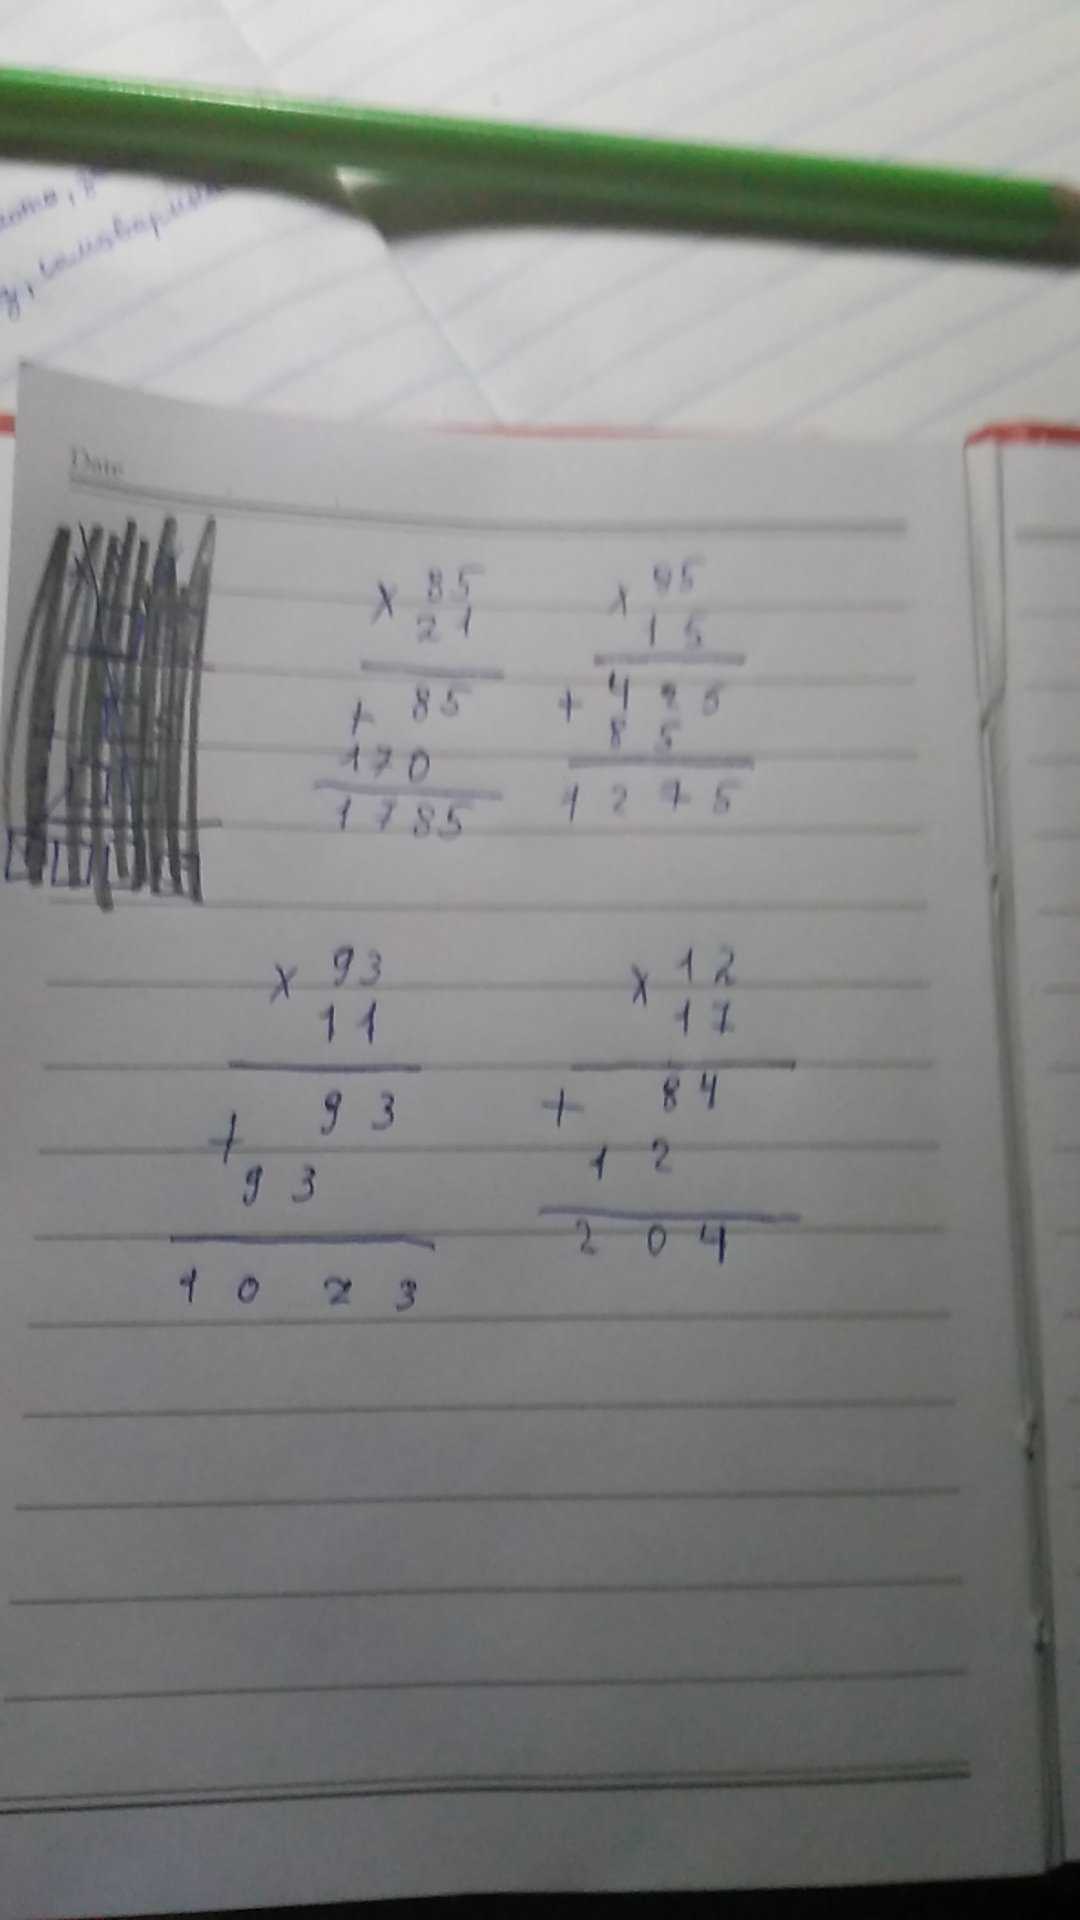 Date
× 85
21
+ 85
170
1785
× 85
15
+ 425
85
1275
× 93
11
93
+
93
1023
× 12
17
+ 84
12
204